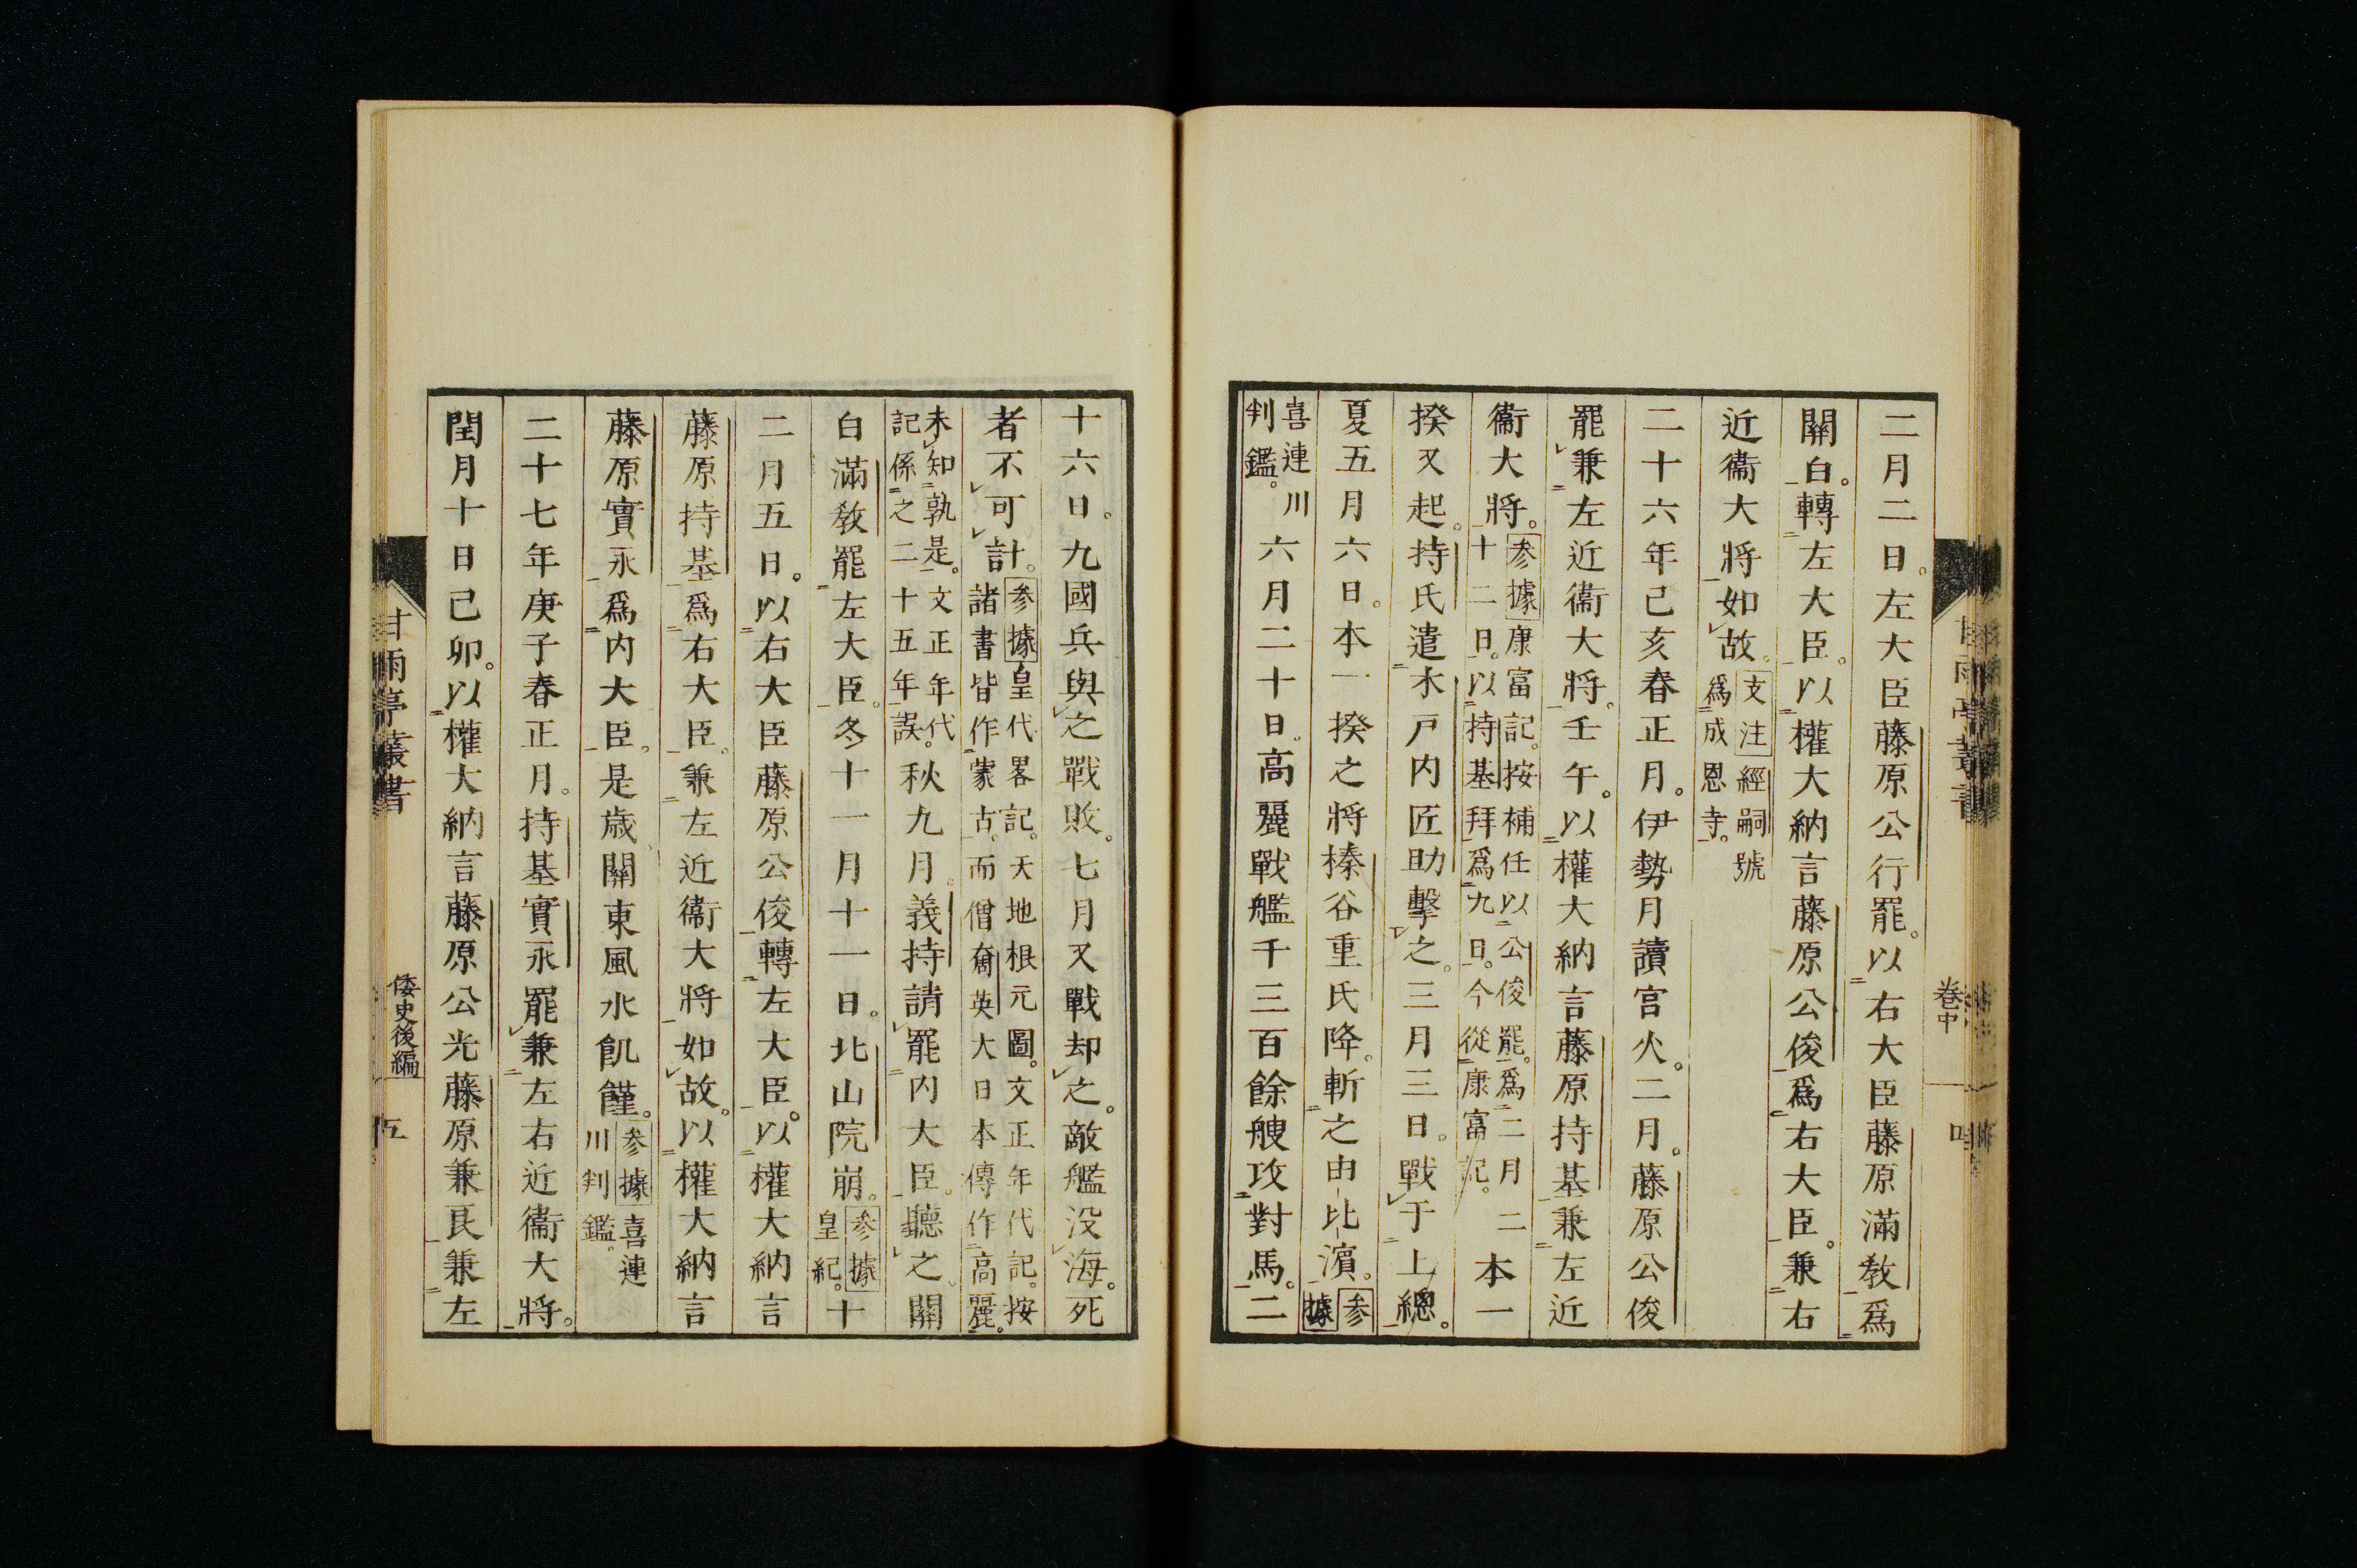 二月二日。左大臣藤原公行罷。以右大臣藤原滿教爲
關白。轉左大臣。以權大納言藤原公俊爲右大臣。兼右
近衞大將如故。支注經嗣號
爲成恩寺。
二十六年己亥春正月。伊勢月讀宮火。二月。藤原公俊
罷兼左近衞大將。壬午。以權大納言藤原持基兼左近
衞大將。參據康富記。按補任以公俊罷。爲二月二
十二日。以持基拜爲九日。今從康富記。本一
揆又起。持氏遣木戸内匠助擊之。三月三日。戰于上總。
夏五月六日。本一揆之將榛谷重氏降。斬之由比濵。參
據
喜連川
判鑑。六月二十日。高麗戰艦千三百餘艘攻對馬。二
卷中
四
十六日。九國兵與之戰敗。七月又戰却之。敵艦没海。死
者不可計。參據皇代畧記。天地根元圖。文正年代記。按
諸書皆作蒙古。而僧奝英大日本傳作高麗。
未知孰是。文正年代
記係之二十五年誤。秋九月。義持請罷内大臣。聽之。關
白滿教罷左大臣。冬十一月十一日。北山院崩。參據
皇紀。十
二月五日。以右大臣藤原公俊轉左大臣。以權大納言
藤原持基爲右大臣。兼左近衞大將如故。以權大納言
藤原實永爲内大臣。是歳關東風水飢饉。參據喜連
川判鑑。
二十七年庚子春正月。持基實永罷兼左右近衞大將。
閏月十日己卯。以權大納言藤原公光藤原兼良兼左
甘雨亭叢書
倭史後編
五